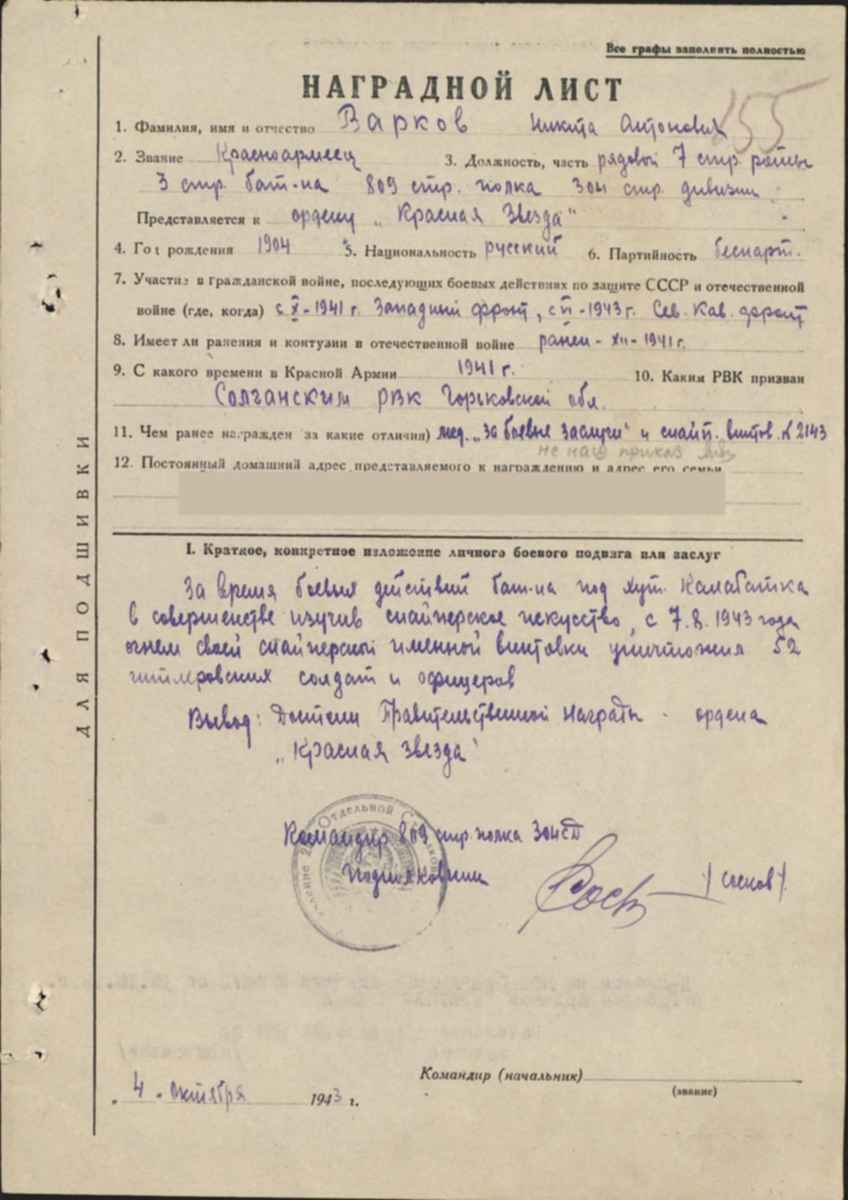 Все графы заполнять полностью
НАГРАДНОЙ ЛИСТ
155
1. Фамилия, имя и отчество Варков Никита Антонович
2. Звание Красноармеец 3. Должность, часть рядовой 7 стр. роты
3 стр. бат-на 809 стр. полка 304 стр. дивизии
Представляется к ордену „Красная Звезда"
4. Год рождения 1904 5. Национальность русский 6. Партийность беспарт.
7. Участие в гражданской войне, последующих боевых действиях по защите СССР и отечественной
войне (где, когда) с X-1941 г. Западный фронт, с VI-1943 г. Сев. Кав. фронт
8. Имеет ли ранения и контузии в отечественной войне ранен - XII-1941 г.
9. С какого времени в Красной Армии 1941 г. 10. Каким РВК призван
Солганским РВК Горьковской обл.
11. Чем ранее награжден за какие отличия) мед. „За боевые заслуги" и снайп. винтов. № 2143
не наш приказ
12. Постоянный домашний адрес представляемого к награждению и адрес его семьи
I. Краткое, конкретное изложение личного боевого подвига или заслуг
За время боевых действий бат-на под хут. Калабатка
в совершенстве изучив снайперское искусство, с 7.8.1943 года
огнем своей снайперской именной винтовки уничтожил 52
гитлеровских солдат и офицеров
Вывод: Достоин Правительственной Награды - ордена
„Красная Звезда"
Командир 809 стр. полка 304 СД
Подполковник /Сосков/
Командир (начальник)
(звание)
„4" октября 1943 г.
ДЛЯ ПОДШИВКИ